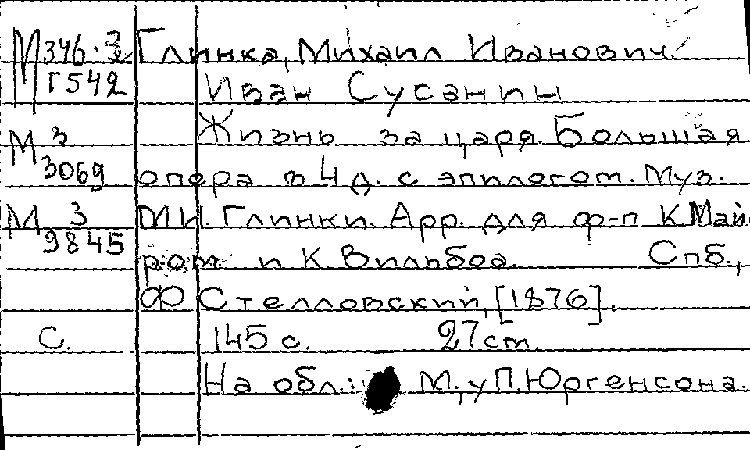 М 346.3 Глинка, Михаил Иванович.
Г542 Иван Сусанин
М 3 Жизнь за царя. Большая
3069 опера в 4 д. с эпилогом. Муз.
М 3 М.И. Глинки. Арр. для ф-п К. Май-
9845 ром и К. Вильбоа. Спб.,
Ф Стелловский, [1876].
С. 145 с. 27 см.
На обл.: М., у П. Юргенсона.